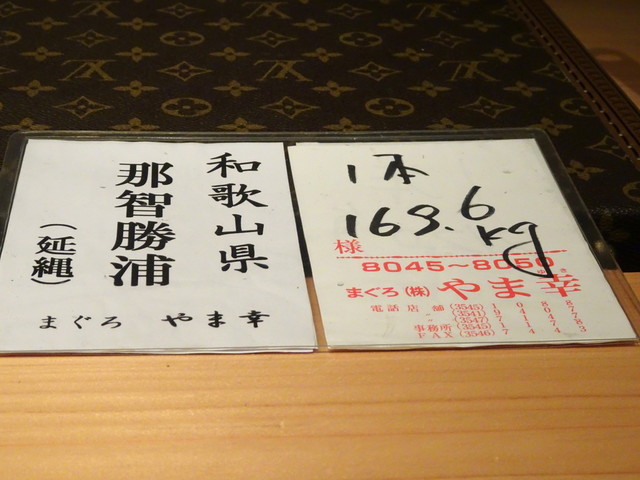 和歌山県
那智勝浦
（延縄）
まぐろ やま幸
1本
168.6
kg
様
8045～8050
まぐろ(株)やま幸
電話店舗
(3545)
(3541)
(3547)
事務所(3545)
FAX(3546)